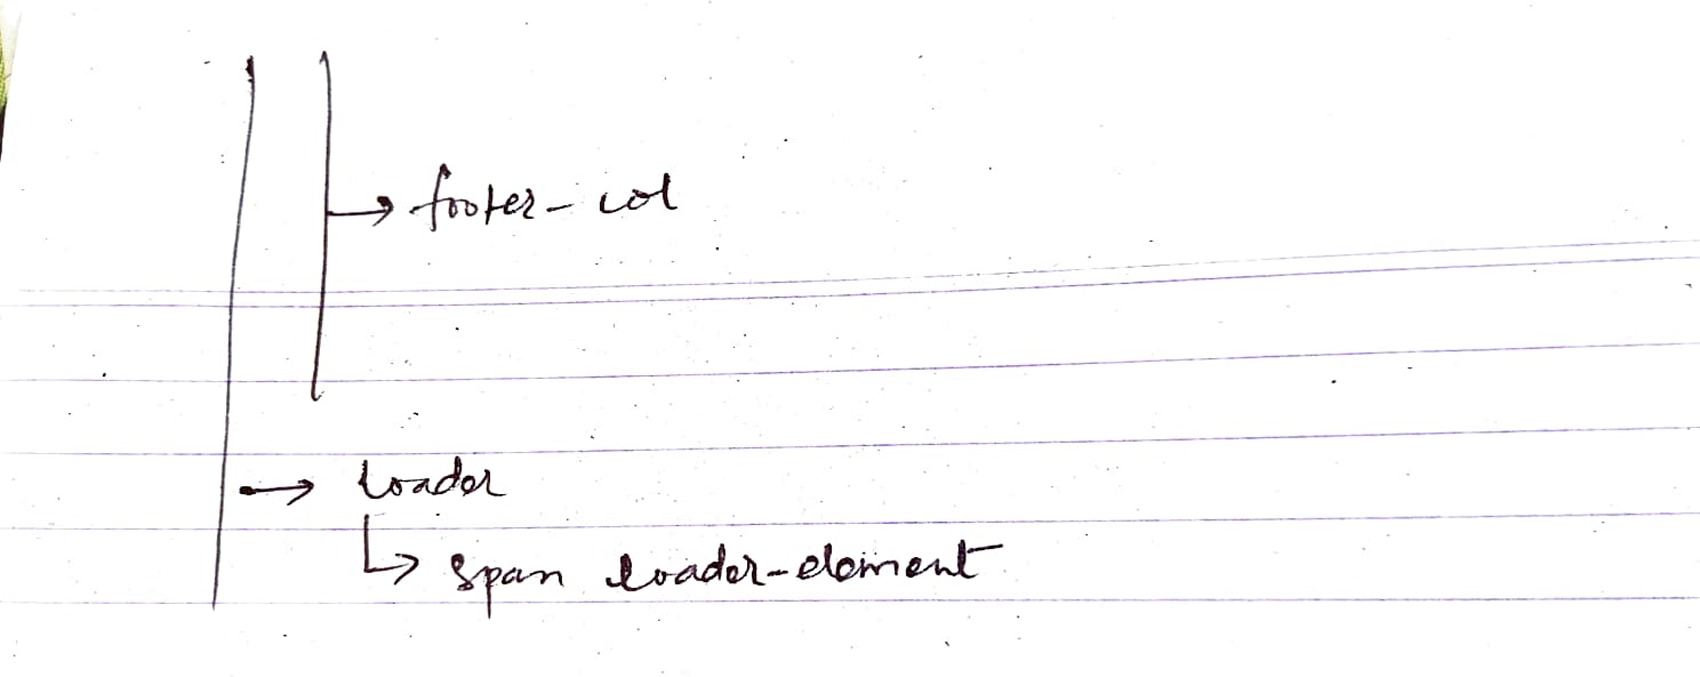 → footer-col
→ loader
↳ span loader-element